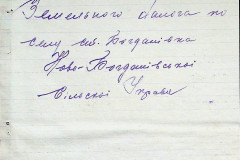 Земельного балога по
селу см. Богданівка
Ново-Богданівської
Сільскої Управи